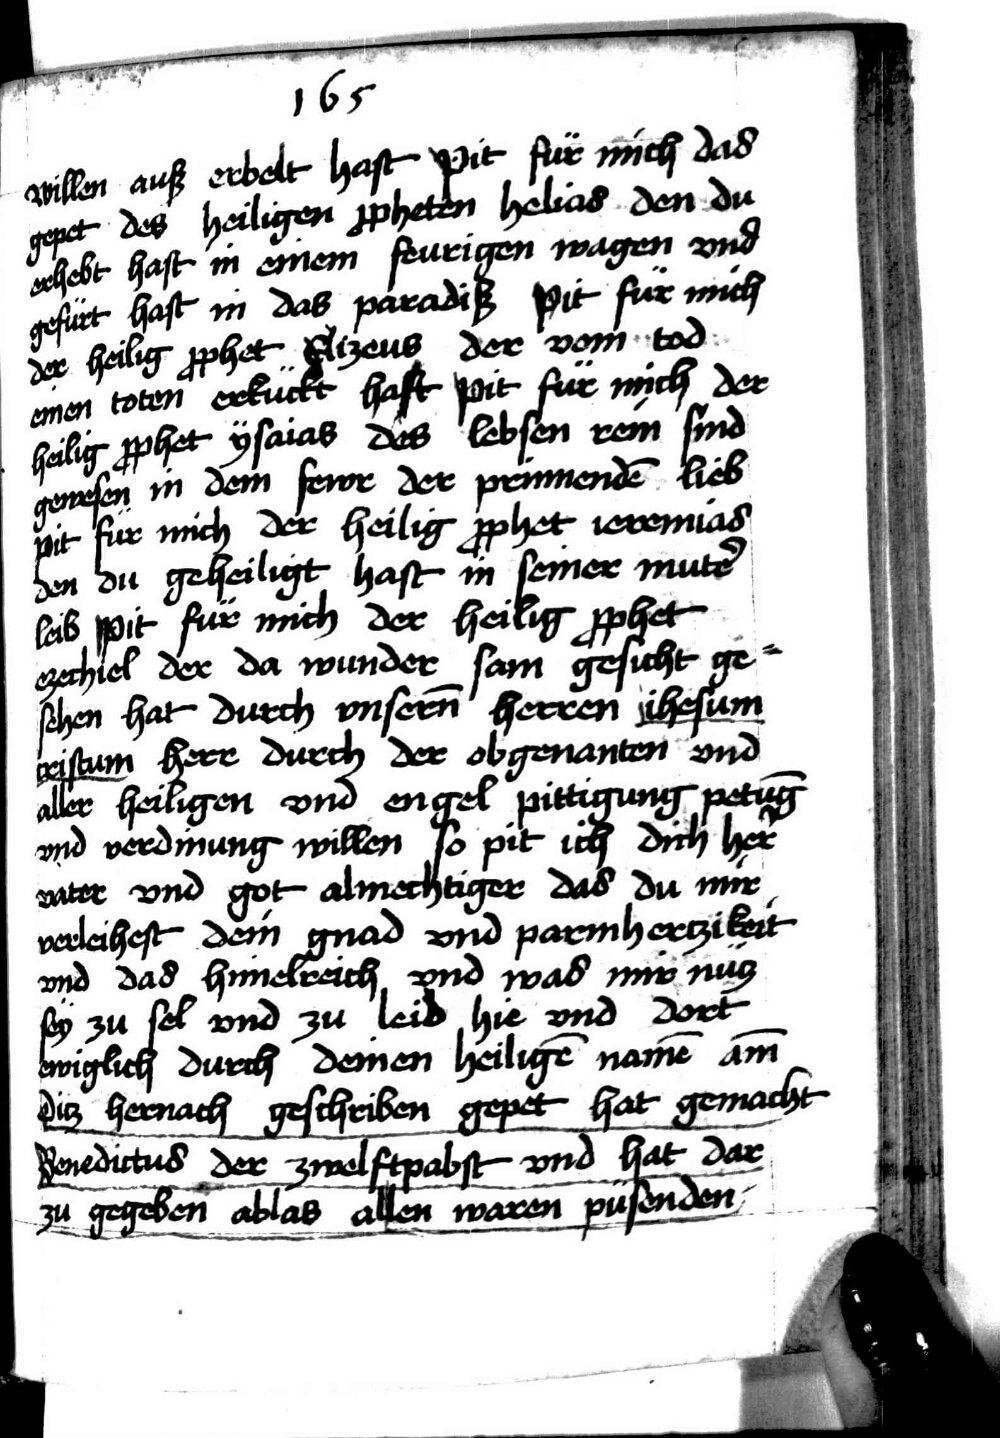 165
willen auß erbelt hast Pit für mich das
gepet des heiligen ꝓpheten helias den du
erhebt hast in einem feurigen wagen vnd
gefürt hast in das paradiß Pit für mich
der heilig ꝓphet Elizeus der vom tod
einen toten erkückt hast Pit für mich der
heilig ꝓphet ÿsaias des lebsen rein sind
gewesen in dem fewr der prinnendē lieb
pit für mich der heilig ꝓphet ieremias
den du geheiligt hast in seiner muter̄
leib Pit für mich der heilig ꝓphet
ezechiel der da wunder sam gesicht ge-
sehen hat durch vnsern̄ herren ihesum
cristum herr durch der obgenanten vnd
aller heiligen vnd engel pittigung petūg
vnd verdinung willen so pit ich dich her̄
vater vnd got almechtiger das du mir
verleihest dein gnad vnd parmhertzikeit
vnd das himelreich vnd was mir nütz
seÿ zu sel vnd zu leib hie vnd dort
ewiglich durch deinen heiligē namē am̄
Ditz hernach geschriben gepet hat gemacht
Benedictus der zwelft pabst vnd hat dar
zu gegeben ablas allen waren püsenden